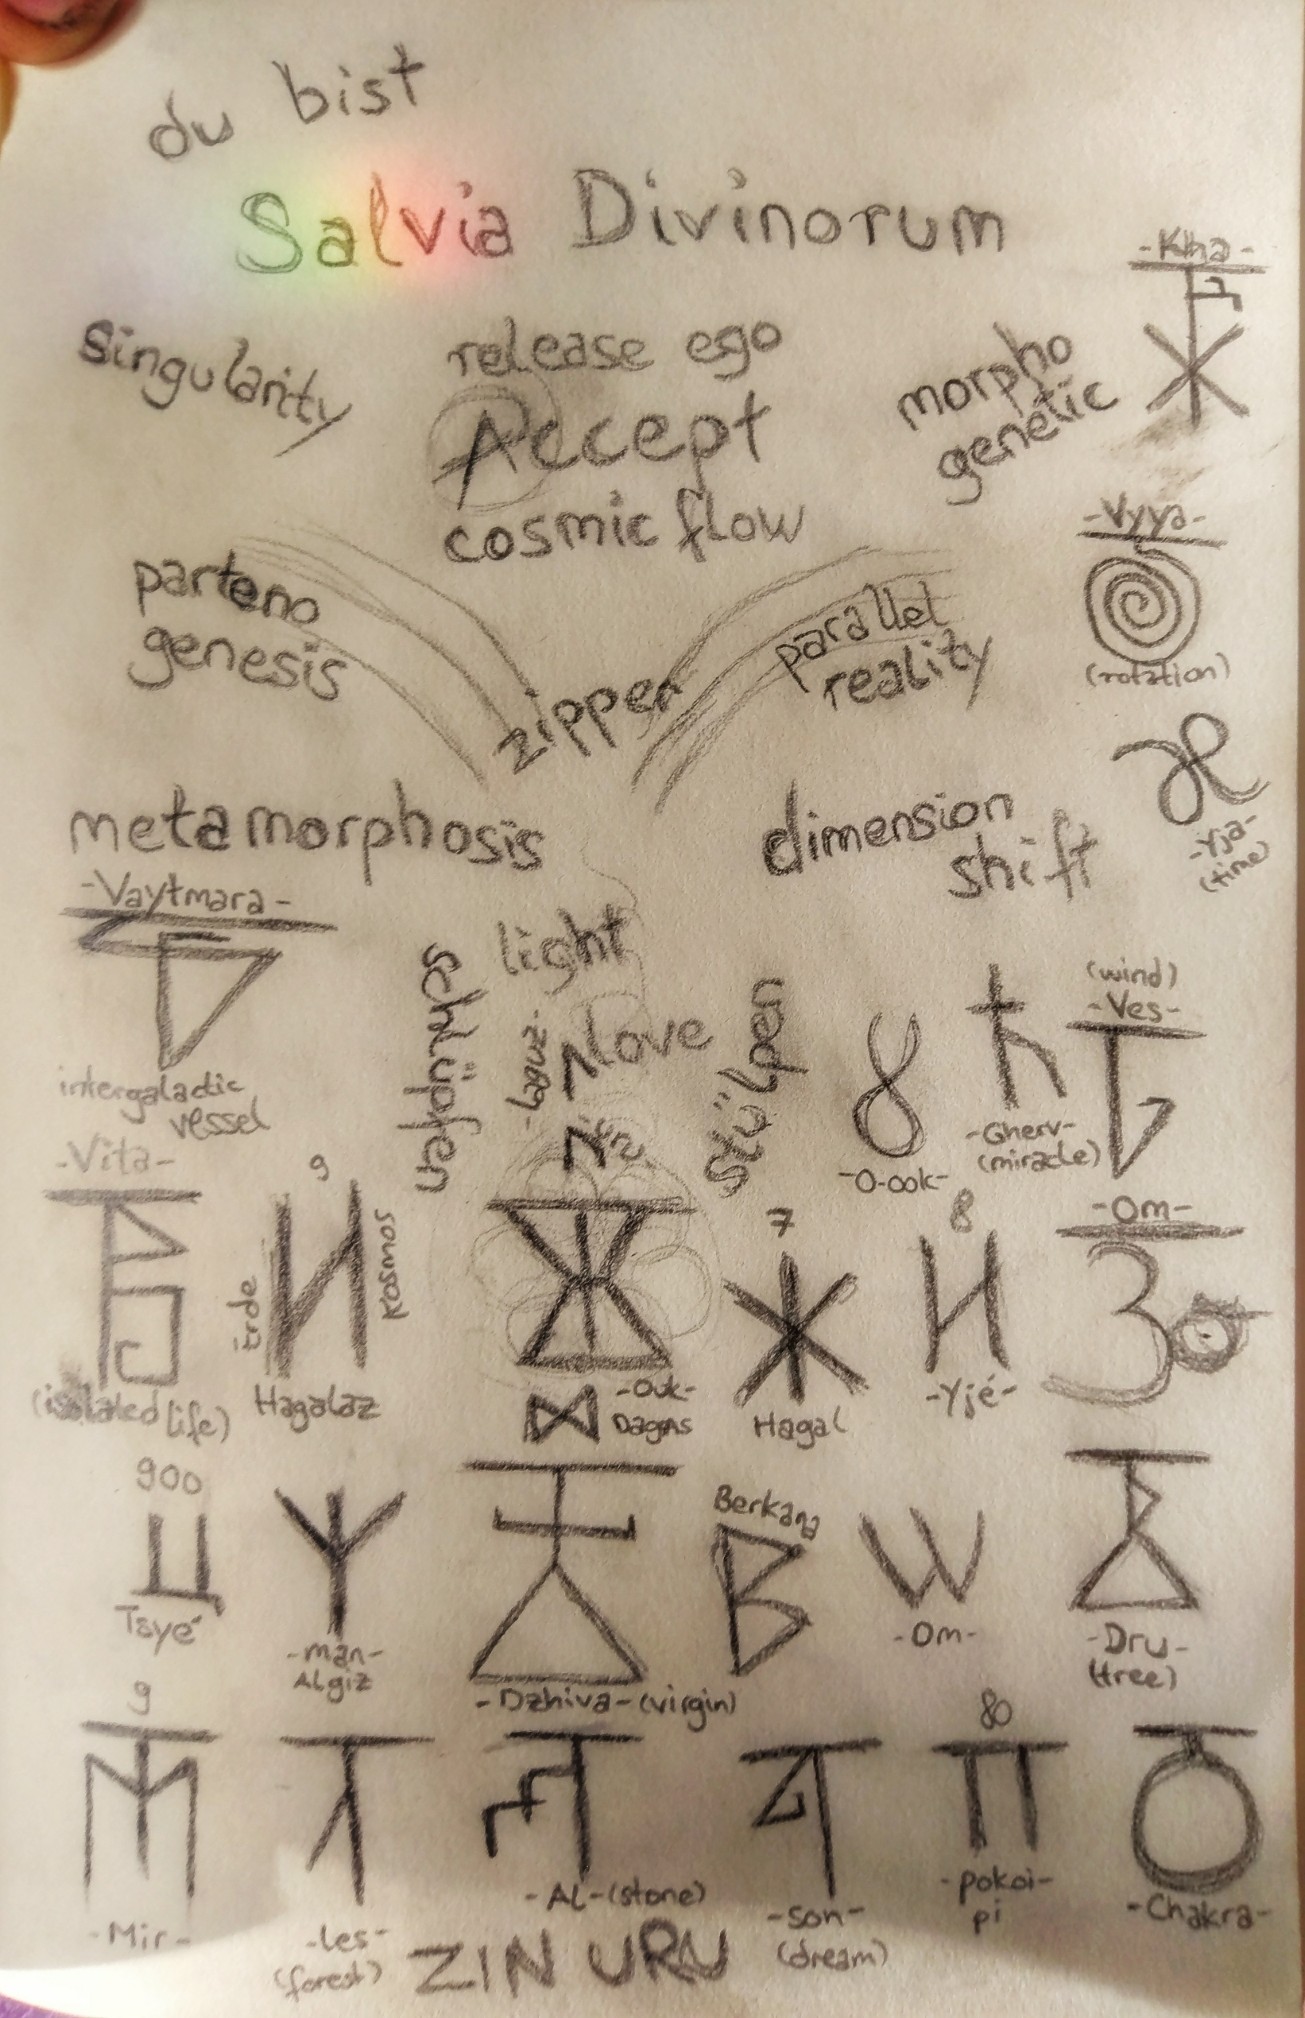 du bist
Salvia Divinorum
-Kha-
singularity
release ego
morpho
genetic
Accept
cosmic flow
-Vyya-
(rotation)
parteno
genesis
zipper
parallel
reality
metamorphosis
dimension
shift
-Yja-
(time)
-Vaytmara-
intergalactic
vessel
schlüpfen
light
-laguz-
love
stülpen
-O-ook-
-Gherv-
(miracle)
(wind)
-Ves-
-Vita-
(isolated life)
9
Erde
И
Kosmos
Hagalaz
-Ouk-
7
Hagal
8
-Yjé-
-Om-
900
Ц
Tsyé
-man-
Algiz
-Dzhiva-(virgin)
Berkana
-Om-
-Dru-
(tree)
9
-Mir-
-les-
(forest)
-AL-(stone)
-son-
(dream)
80
-pokoi-
pi
-Chakra-
ZIN URU